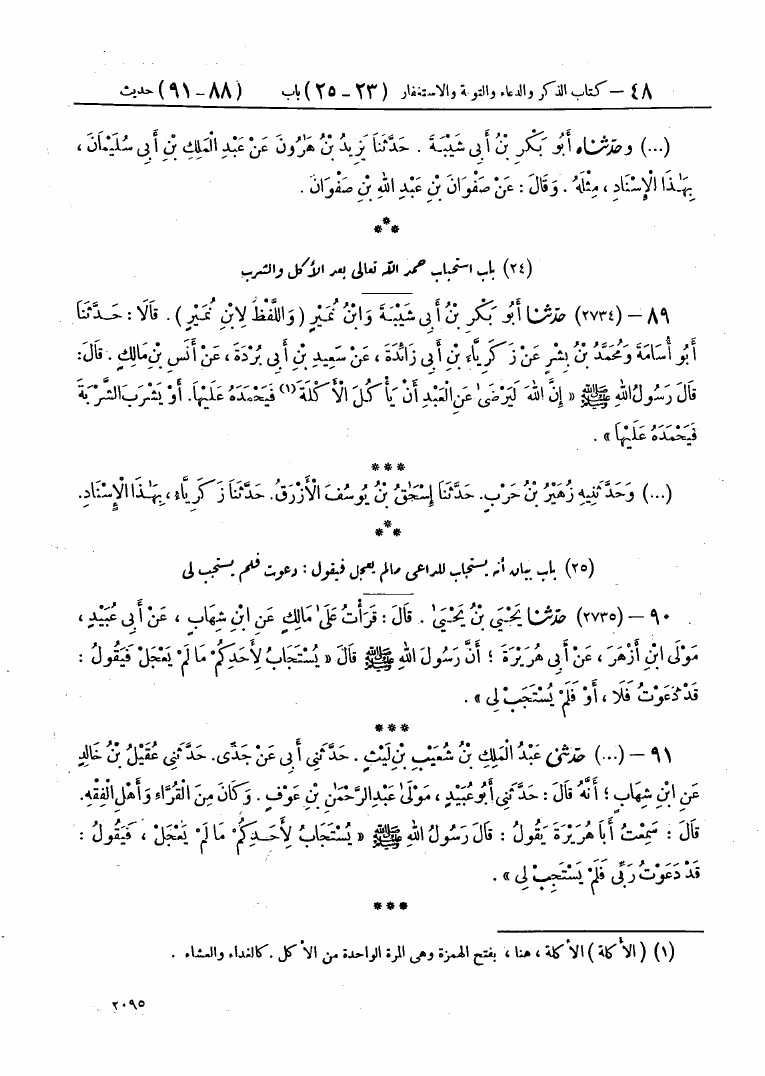 ٤٨ – كتاب الذكر والدعاء والتوبة والاستغفار (٢٣ – ٢٥) باب (٨٨ – ٩١) حديث
(...) وَحَدَّثَنَاه أَبُو بَكْرِ بْنُ أَبِي شَيْبَةَ . حَدَّثَنَا يَزِيدُ بْنُ هَٰرُونَ عَنْ عَبْدِ الْمَلِكِ بْنِ أَبِي سُلَيْمَانَ ،
بِهَٰذَا الْإِسْنَادِ ، مِثْلَهُ . وَقَالَ : عَنْ صَفْوَانَ بْنِ عَبْدِ اللهِ بْنِ صَفْوَانَ .
***
(٢٤) باب استحباب حمد الله تعالى بعد الأكل والشرب
٨٩ – (٢٧٣٤) حَدَّثَنَا أَبُو بَكْرِ بْنُ أَبِي شَيْبَةَ وَابْنُ نُمَيْرٍ (وَاللَّفْظُ لِابْنِ نُمَيْرٍ) . قَالَا : حَدَّثَنَا
أَبُو أُسَامَةَ وَمُحَمَّدُ بْنُ بِشْرٍ عَنْ زَكَرِيَّاءَ بْنِ أَبِي زَائِدَةَ ، عَنْ سَعِيدِ بْنِ أَبِي بُرْدَةَ ، عَنْ أَنَسِ بْنِ مَالِكٍ . قَالَ :
قَالَ رَسُولُ اللهِ ﷺ « إِنَّ اللهَ لَيَرْضَىٰ عَنِ الْعَبْدِ أَنْ يَأْكُلَ الْأَكْلَةَ (١) فَيَحْمَدَهُ عَلَيْهَا. أَوْ يَشْرَبَ الشَّرْبَةَ
فَيَحْمَدَهُ عَلَيْهَا » .
***
(...) وَحَدَّثَنِيهِ زُهَيْرُ بْنُ حَرْبٍ. حَدَّثَنَا إِسْحَٰقُ بْنُ يُوسُفَ الْأَزْرَقُ. حَدَّثَنَا زَكَرِيَّاءُ ، بِهَٰذَا الْإِسْنَادِ.
***
(٢٥) باب بيان أنه يستجاب للداعى مالم يعجل فيقول : دعوت فلم يستجب لى
٩٠ – (٢٧٣٥) حَدَّثَنَا يَحْيَىٰ بْنُ يَحْيَىٰ . قَالَ : قَرَأْتُ عَلَىٰ مَالِكٍ عَنِ ابْنِ شِهَابٍ ، عَنْ أَبِي عُبَيْدٍ ،
مَوْلَى ابْنِ أَزْهَرَ ، عَنْ أَبِي هُرَيْرَةَ ؛ أَنَّ رَسُولَ اللهِ ﷺ قَالَ « يُسْتَجَابُ لِأَحَدِكُمْ مَا لَمْ يَعْجَلْ فَيَقُولُ :
قَدْ دَعَوْتُ فَلَا ، أَوْ فَلَمْ يُسْتَجَبْ لِي » .
***
٩١ – (...) حَدَّثَنِي عَبْدُ الْمَلِكِ بْنُ شُعَيْبِ بْنِ لَيْثٍ . حَدَّثَنِي أَبِي عَنْ جَدِّي. حَدَّثَنِي عُقَيْلُ بْنُ خَالِدٍ
عَنِ ابْنِ شِهَابٍ ؛ أَنَّهُ قَالَ : حَدَّثَنِي أَبُو عُبَيْدٍ ، مَوْلَىٰ عَبْدِ الرَّحْمَٰنِ بْنِ عَوْفٍ . وَكَانَ مِنَ الْقُرَّاءِ وَأَهْلِ الْفِقْهِ.
قَالَ : سَمِعْتُ أَبَا هُرَيْرَةَ يَقُولُ : قَالَ رَسُولُ اللهِ ﷺ « يُسْتَجَابُ لِأَحَدِكُمْ مَا لَمْ يَعْجَلْ ، فَيَقُولُ :
قَدْ دَعَوْتُ رَبِّي فَلَمْ يَسْتَجِبْ لِي » .
***
(١) (الأكلة) الأكلة ، هنا ، بفتح الهمزة وهى المرة الواحدة من الأكل . كالغداء والعشاء .
٢٠٩٥